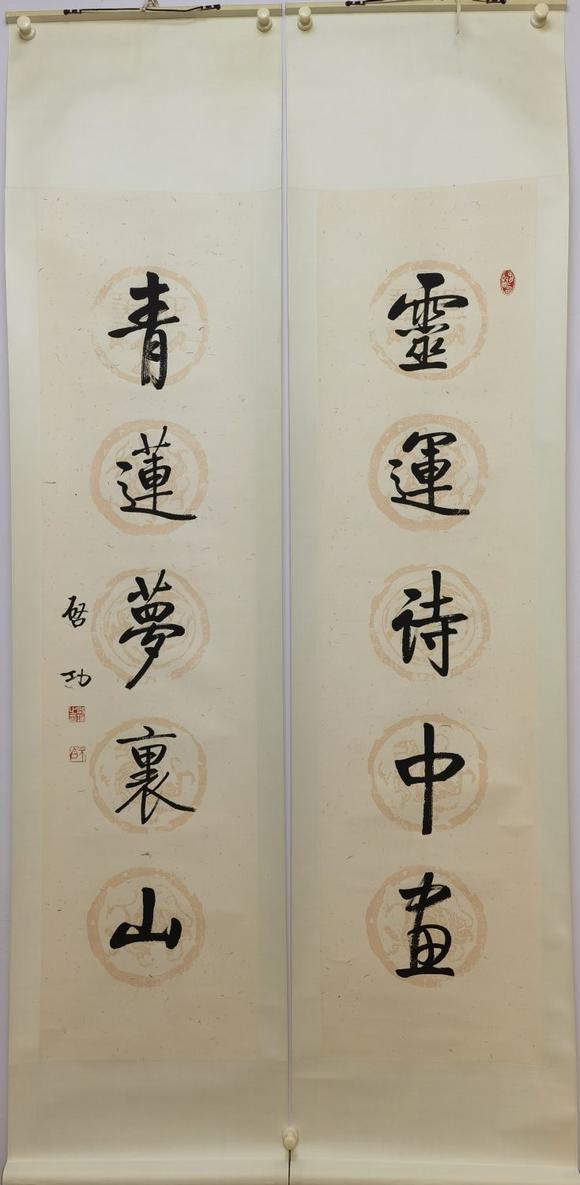 靈運詩中畫
青蓮夢裏山
啓功